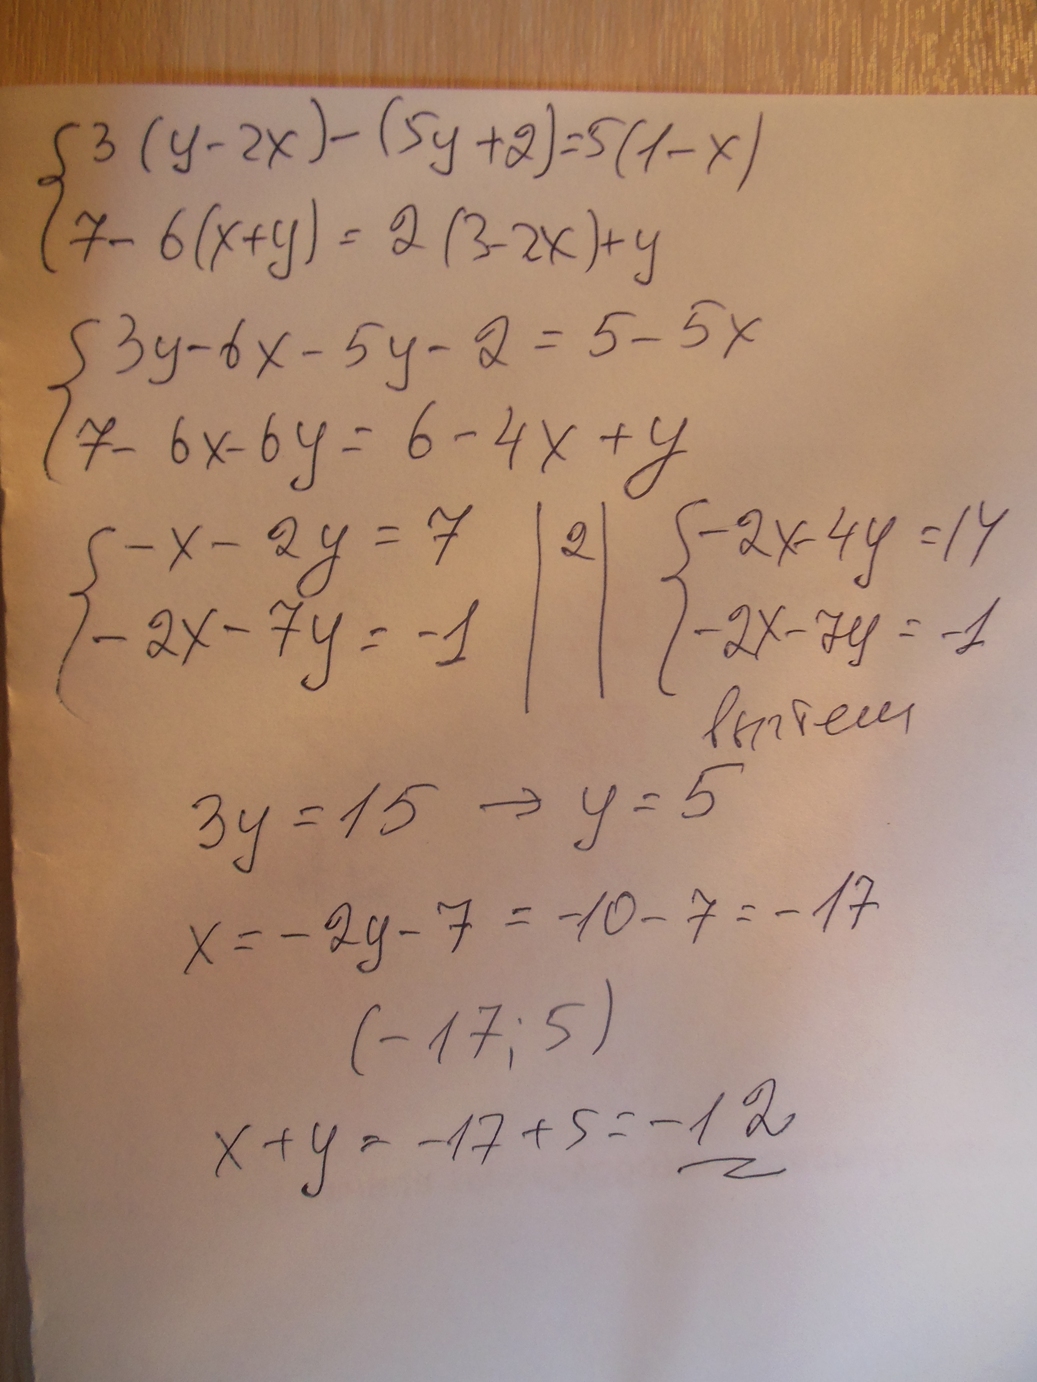 3(y-2x)-(5y+2)=5(1-x)
7-6(x+y)=2(3-2x)+y
3y-6x-5y-2=5-5x
7-6x-6y=6-4x+y
-x-2y=7 |2| -2x-4y=14
-2x-7y=-1 -2x-7y=-1
вычтем
3y=15 → y=5
x=-2y-7=-10-7=-17
(-17;5)
x+y=-17+5=-12